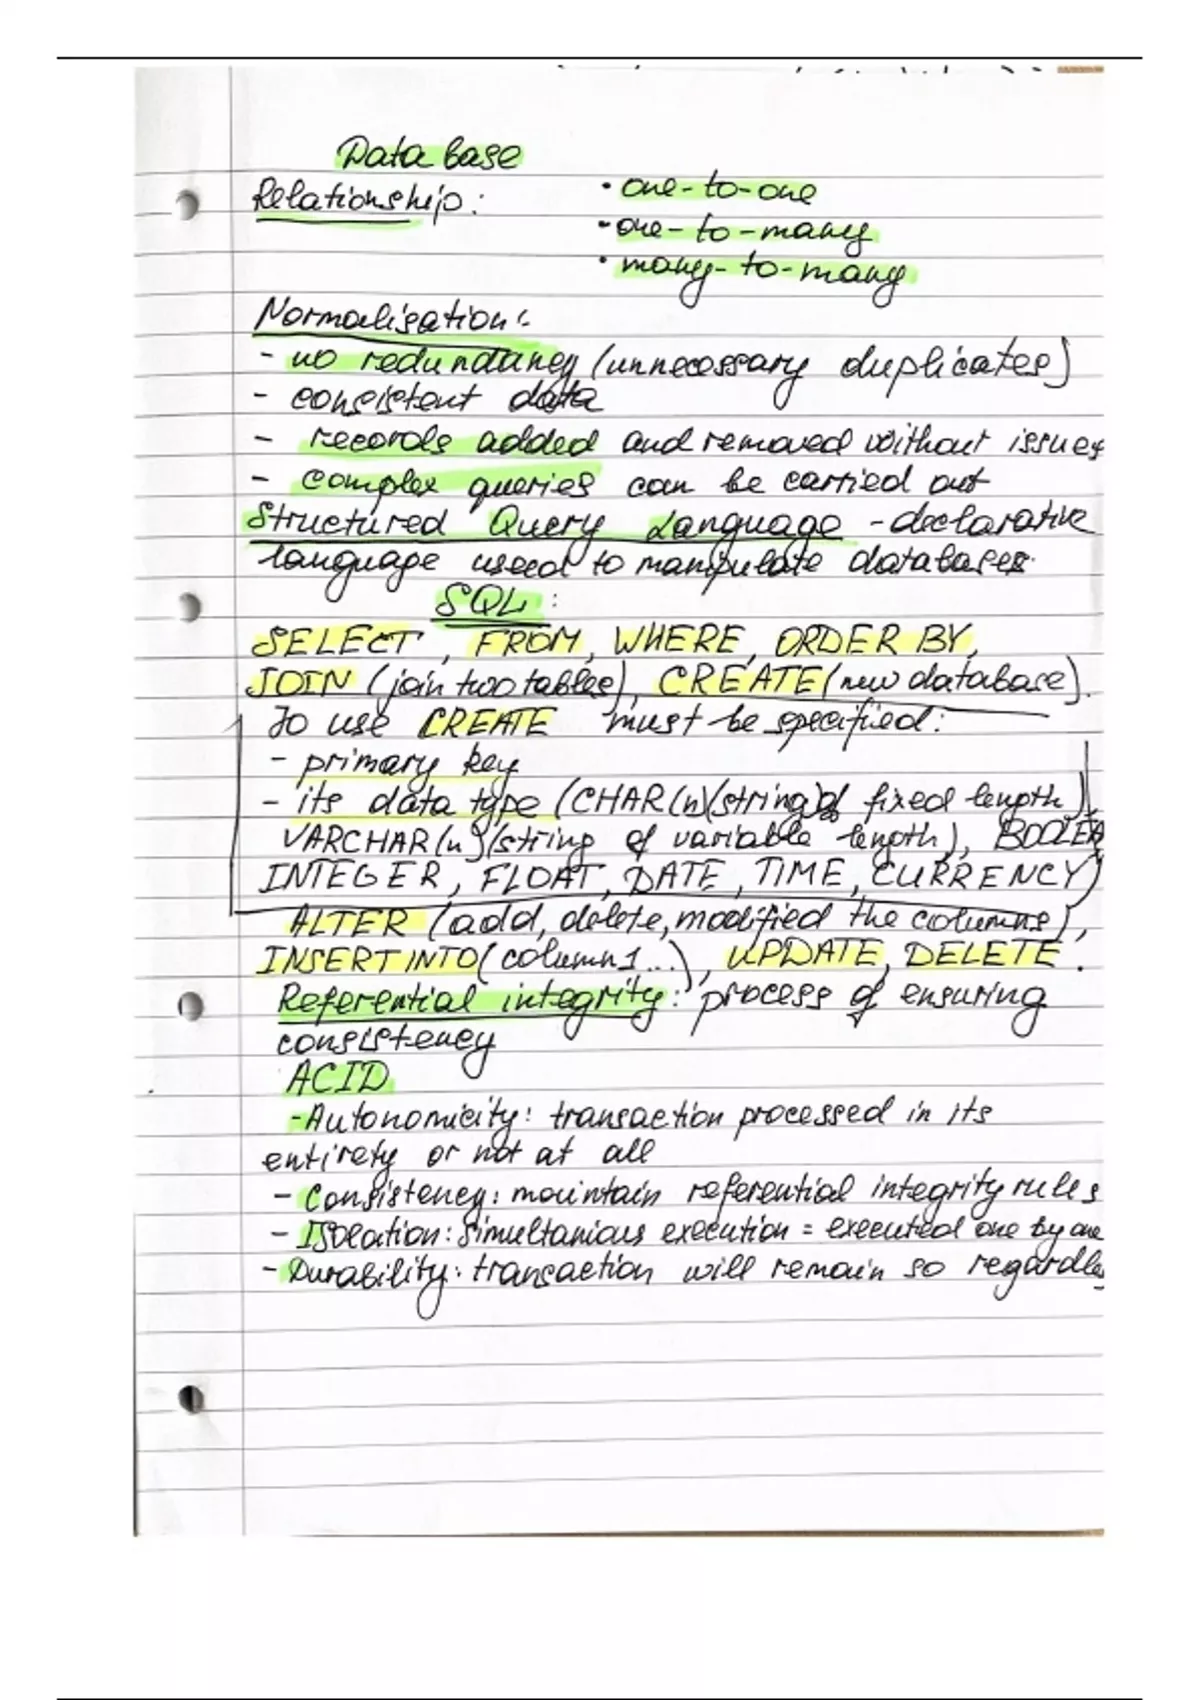 Data base
Relationship: • one-to-one
• one-to-many
• many-to-many
Normalisation:
- no redundancy (unnecessary duplicates)
- consistent data
- records added and removed without issues
- complex queries can be carried out
Structured Query Language - declarative
language used to manipulate databases.
SQL:
SELECT, FROM, WHERE, ORDER BY,
JOIN (join two tables), CREATE (new database).
To use CREATE must be specified:
- primary key
- its data type (CHAR(n)(string of fixed length),
VARCHAR(n)(string of variable length), BOOLEA
INTEGER, FLOAT, DATE, TIME, CURRENCY)
ALTER (add, delete, modified the columns),
INSERT INTO (column1...), UPDATE, DELETE.
Referential integrity: process of ensuring
consistency
ACID
- Autonomicity: transaction processed in its
entirety or not at all
- Consistency: maintain referential integrity rules
- Isolation: simultanious execution = executed one by one
- Durability: transaction will remain so regardles